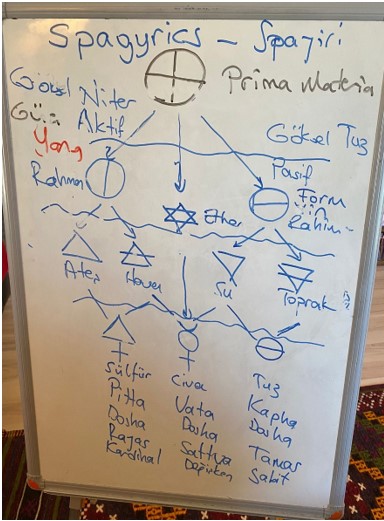 Spagyrics - Spajiri
Prima Materia
Göksel Niter
Güç Aktif
Yang
Göksel Tuz
Pasif
Form
Rahman
Ether
Rahim
Ateş
Hava
Su
Toprak
Sülfür
Civa
Tuz
Pitta
Vata
Kapha
Dosha
Dosha
Dosha
Rajas
Sattva
Tamas
Kardinal
Değişken
Sabit